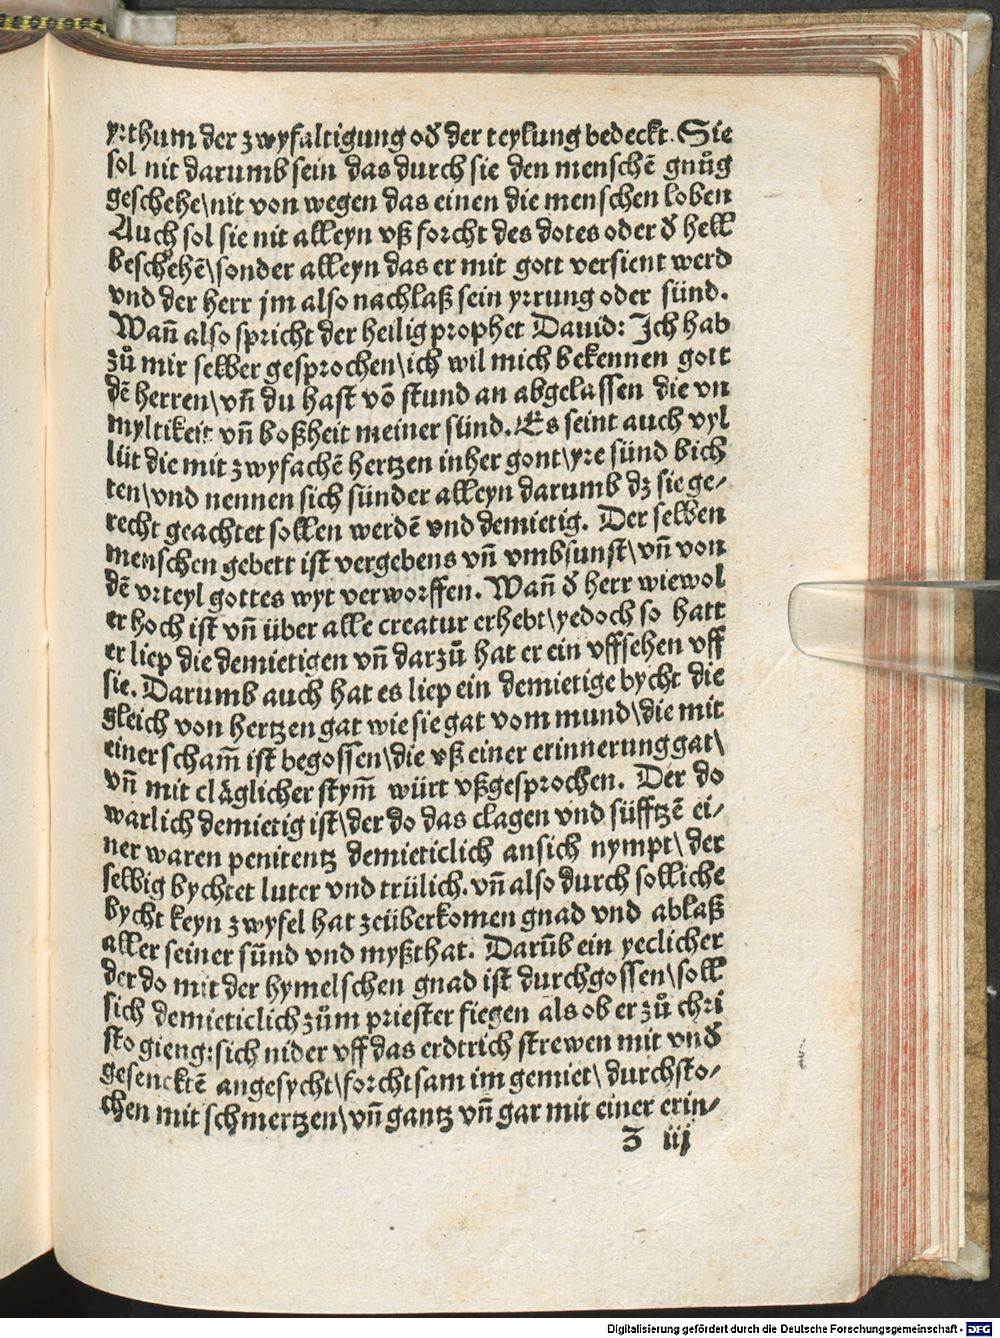 yrthum der zwyfaltigung oð der teylung bedeckt. Sie
sol nit darumb sein das durch sie den menschē gnůg
geschehe\nit von wegen das einen die menschen loben
Auch sol sie nit alleyn vß forcht des dotes oder ð hell
beschehē\sonder alleyn das er mit gott versient werd
vnd der herr jm also nachlaß sein yrrung oder sünd.
Wañ also spricht der heilig prophet Dauid: Ich hab
zů mir selber gesprochen\ich wil mich bekennen gott
dē herren\vñ du hast vō stund an abgelassen die vn
myltikeit vñ boßheit meiner sünd. Es seint auch vyl
lüt die mit zwyfachē hertzen inher gont\yre sünd bich
ten\vnd nennen sich sünder alleyn darumb dz sie ge⸗
recht geachtet sollen werdē vnd demietig. Der selben
menschen gebett ist vergebens vñ vmbsunst\vñ von
dē vrteyl gottes wyt verworffen. Wañ ð herr wiewol
er hoch ist vñ über alle creatur erhebt\yedoch so hatt
er liep die demietigen vñ darzů hat er ein vffsehen vff
sie. Darumb auch hat es liep ein demietige bycht die
gleich von hertzen gat wie sie gat vom mund\die mit
einer scham̄ ist begossen\die vß einer erinnerung gat\
vñ mit cläglicher stym̄ würt vßgesprochen. Der do
warlich demietig ist\der do das clagen vnd süfftzē ei⸗
ner waren penitentz demieticlich an sich nympt\der
selbig bychtet luter vnd trülich. vñ also durch solliche
bycht keyn zwyfel hat zeüberkomen gnad vnd ablaß
aller seiner sünd vnd myßthat. Darūb ein yeclicher
der do mit der hymelschen gnad ist durchgossen\soll
sich demieticlich zům priester fiegen als ob er zů chri
sto gieng: sich nider vff das erdtrich strewen mit vnð
gesencktē angesycht\forchtsam im gemiet\durchsto⸗
chen mit schmertzen\vñ gantz vñ gar mit einer erin⸗
З iij
Digitalisierung gefördert durch die Deutsche Forschungsgemeinschaft - DFG